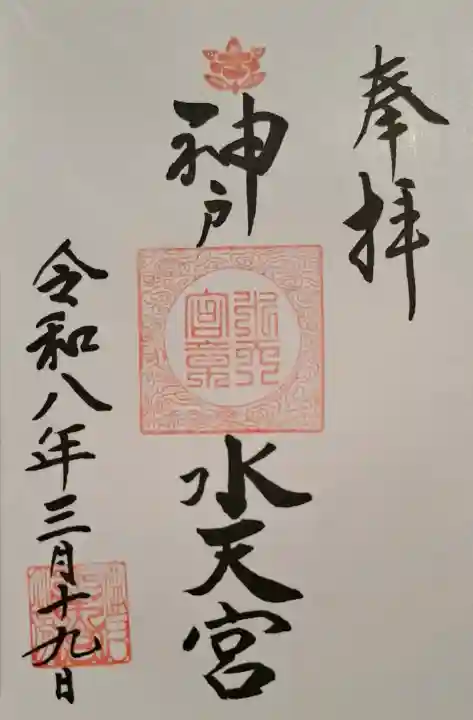 奉拝
神戸
水天宮章
水天宮
令和八年三月十九日